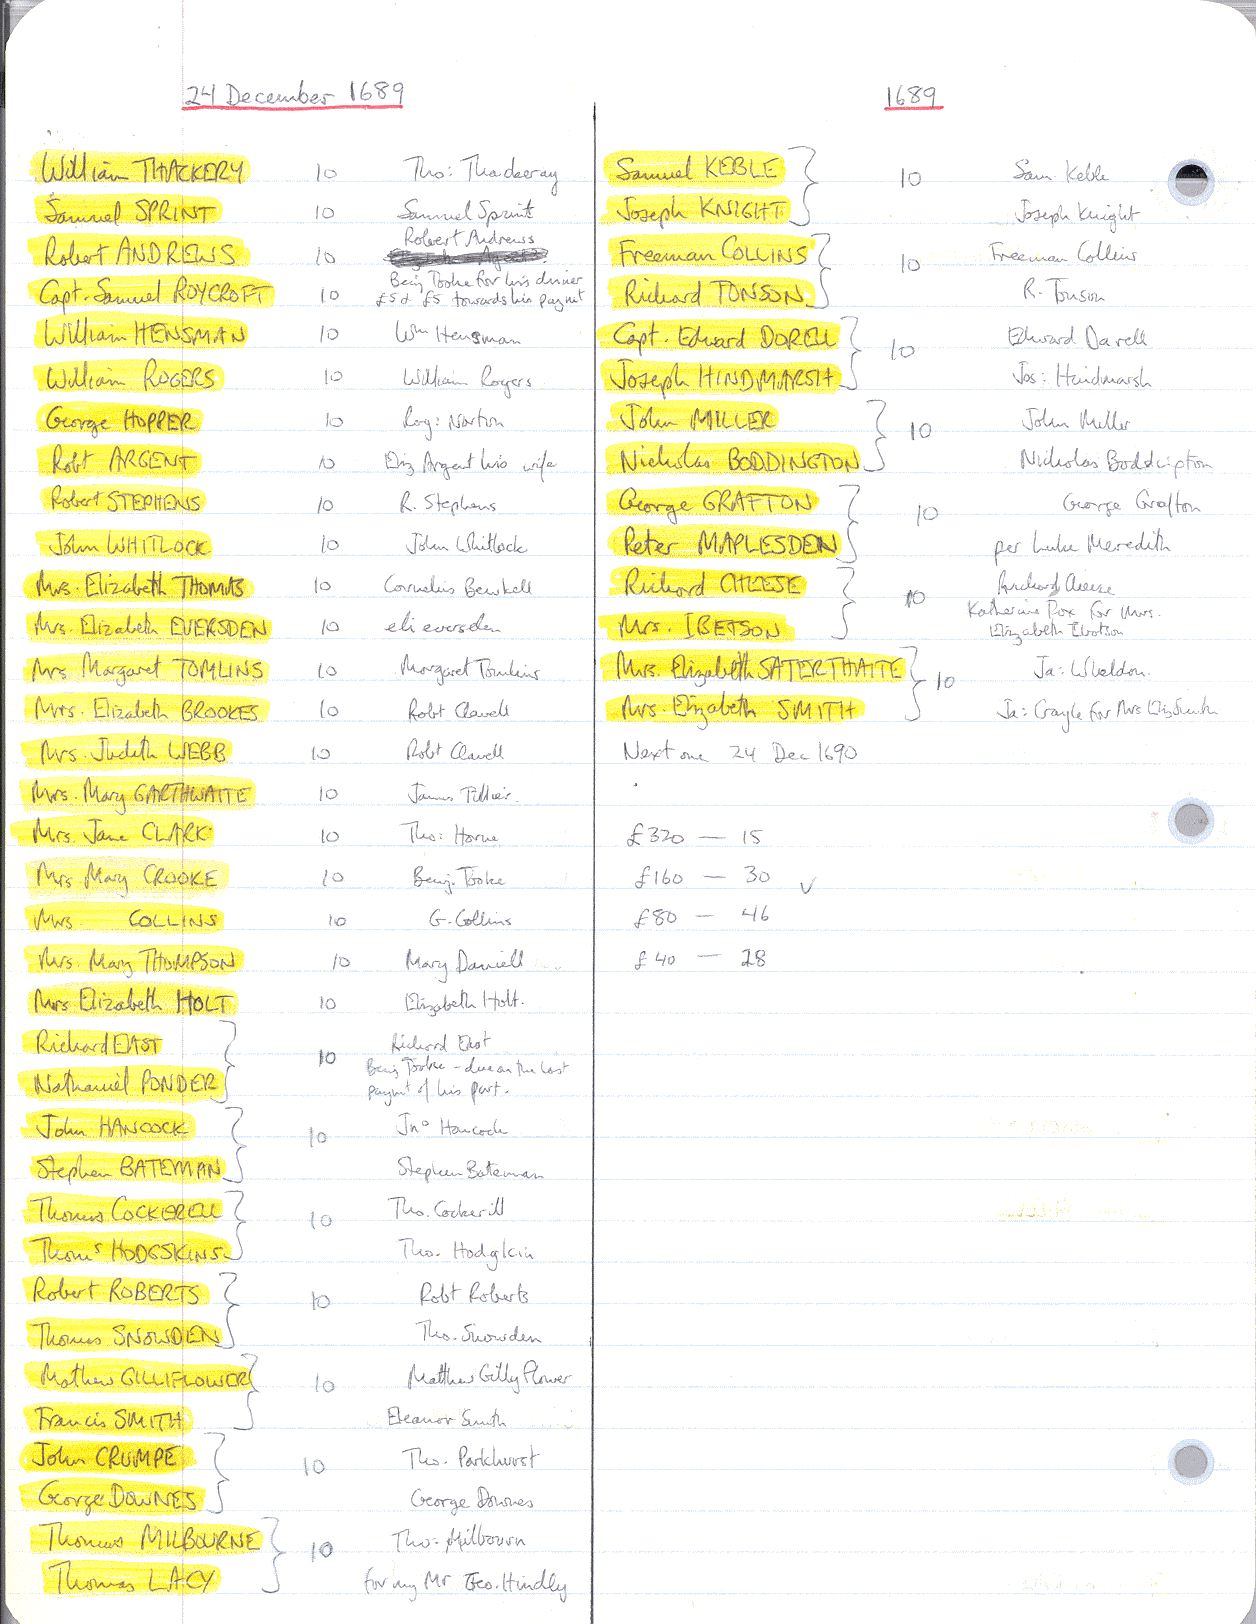 24 December 1689
William THACKERY 10 Tho: Thackeray
Samuel SPRINT 10 Samuel Sprint
Robert ANDREWS 10 Robert Andrews
Capt. Samuel ROYCROFT 10 Benj Tooke for his dinner
£5 & £5 towards his paymt
William HENSMAN 10 Wm Hensman
William ROGERS 10 William Rogers
George HOPPER 10 Rog: Norton
Robt ARGENT 10 Eliz Argent his wife
Robert STEPHENS 10 R. Stephens
John WHITLOCK 10 John Whitlock
Mrs. Elizabeth THOMAS 10 Cornelius Bewkell
Mrs. Elizabeth EVERSDEN 10 eli eversden
Mrs Margaret TOMLINS 10 Margaret Tomkins
Mrs. Elizabeth BROOKES 10 Robt Clavell
Mrs. Judith WEBB 10 Robt Clavell
Mrs. Mary GARTHWAITE 10 James
Mrs. Jane CLARK 10 Tho: Horne
Mrs Mary CROOKE 10 Benj. Tooke
Mrs COLLINS 10 G. Collins
Mrs. Mary THOMPSON 10 Mary Daniell
Mrs Elizabeth HOLT 10 Elizabeth Holt.
Richard EAST 10 Richard East
Nathaniel PONDER Benj Tooke - due on the last
paymt of his part.
John HANCOCK 10 Jno Hancock
Stephen BATEMAN Stephen Bateman
Thomas COCKERELL 10 Tho. Cockerill
Thoms HODGSKINS Tho. Hodgkin
Robert ROBERTS 10 Robt Roberts
Thomas SNOWDEN Tho. Snowden
Mathew GILLIFLOWER 10 Matthew Gillyflower
Francis SMITH Eleanor Smith
John CRUMPE 10 Tho. Parkhurst
George DOWNES George Downes
Thomas MILBOURNE 10 Tho. Milbourn
Thomas LACY for my Mr Geo. Hindly
1689
Samuel KEBLE 10 Sam. Keble
Joseph KNIGHT Joseph Knight
Freeman COLLINS 10 Freeman Collins
Richard TONSON R. Tonson
Capt. Edward DORELL 10 Edward Darell
Joseph HINDMARSH Jos: Hindmarsh
John MILLER 10 John Miller
Nicholas BODDINGTON Nicholas Boddington
George GRAFTON 10 George Grafton
Peter MAPLESDEN per Luke Meredith
Richard CHEESE 10 Richard Cheese
Mrs. IBETSON Katherine Fox for Mrs.
Elizabeth Ebotson
Mrs. Elizabeth SATERTHAITE 10 Ja: Wheldon.
Mrs. Elizabeth SMITH Ja: Crayle for Mrs Eliz Smith
Next one 24 Dec 1690
£320 — 15
£160 — 30 ✓
£80 — 46
£40 — 28